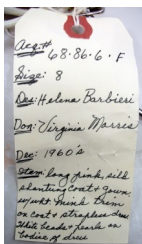 Acq.# 68.86.6.F
Size: 8
Des: Helena Barbieri
Don: Virginia Morris
Dec: 1960's
long pink, silk
shantung coat & gown
mink trim
on coat & strapless dress
White beads & pearls on
bodice of dress